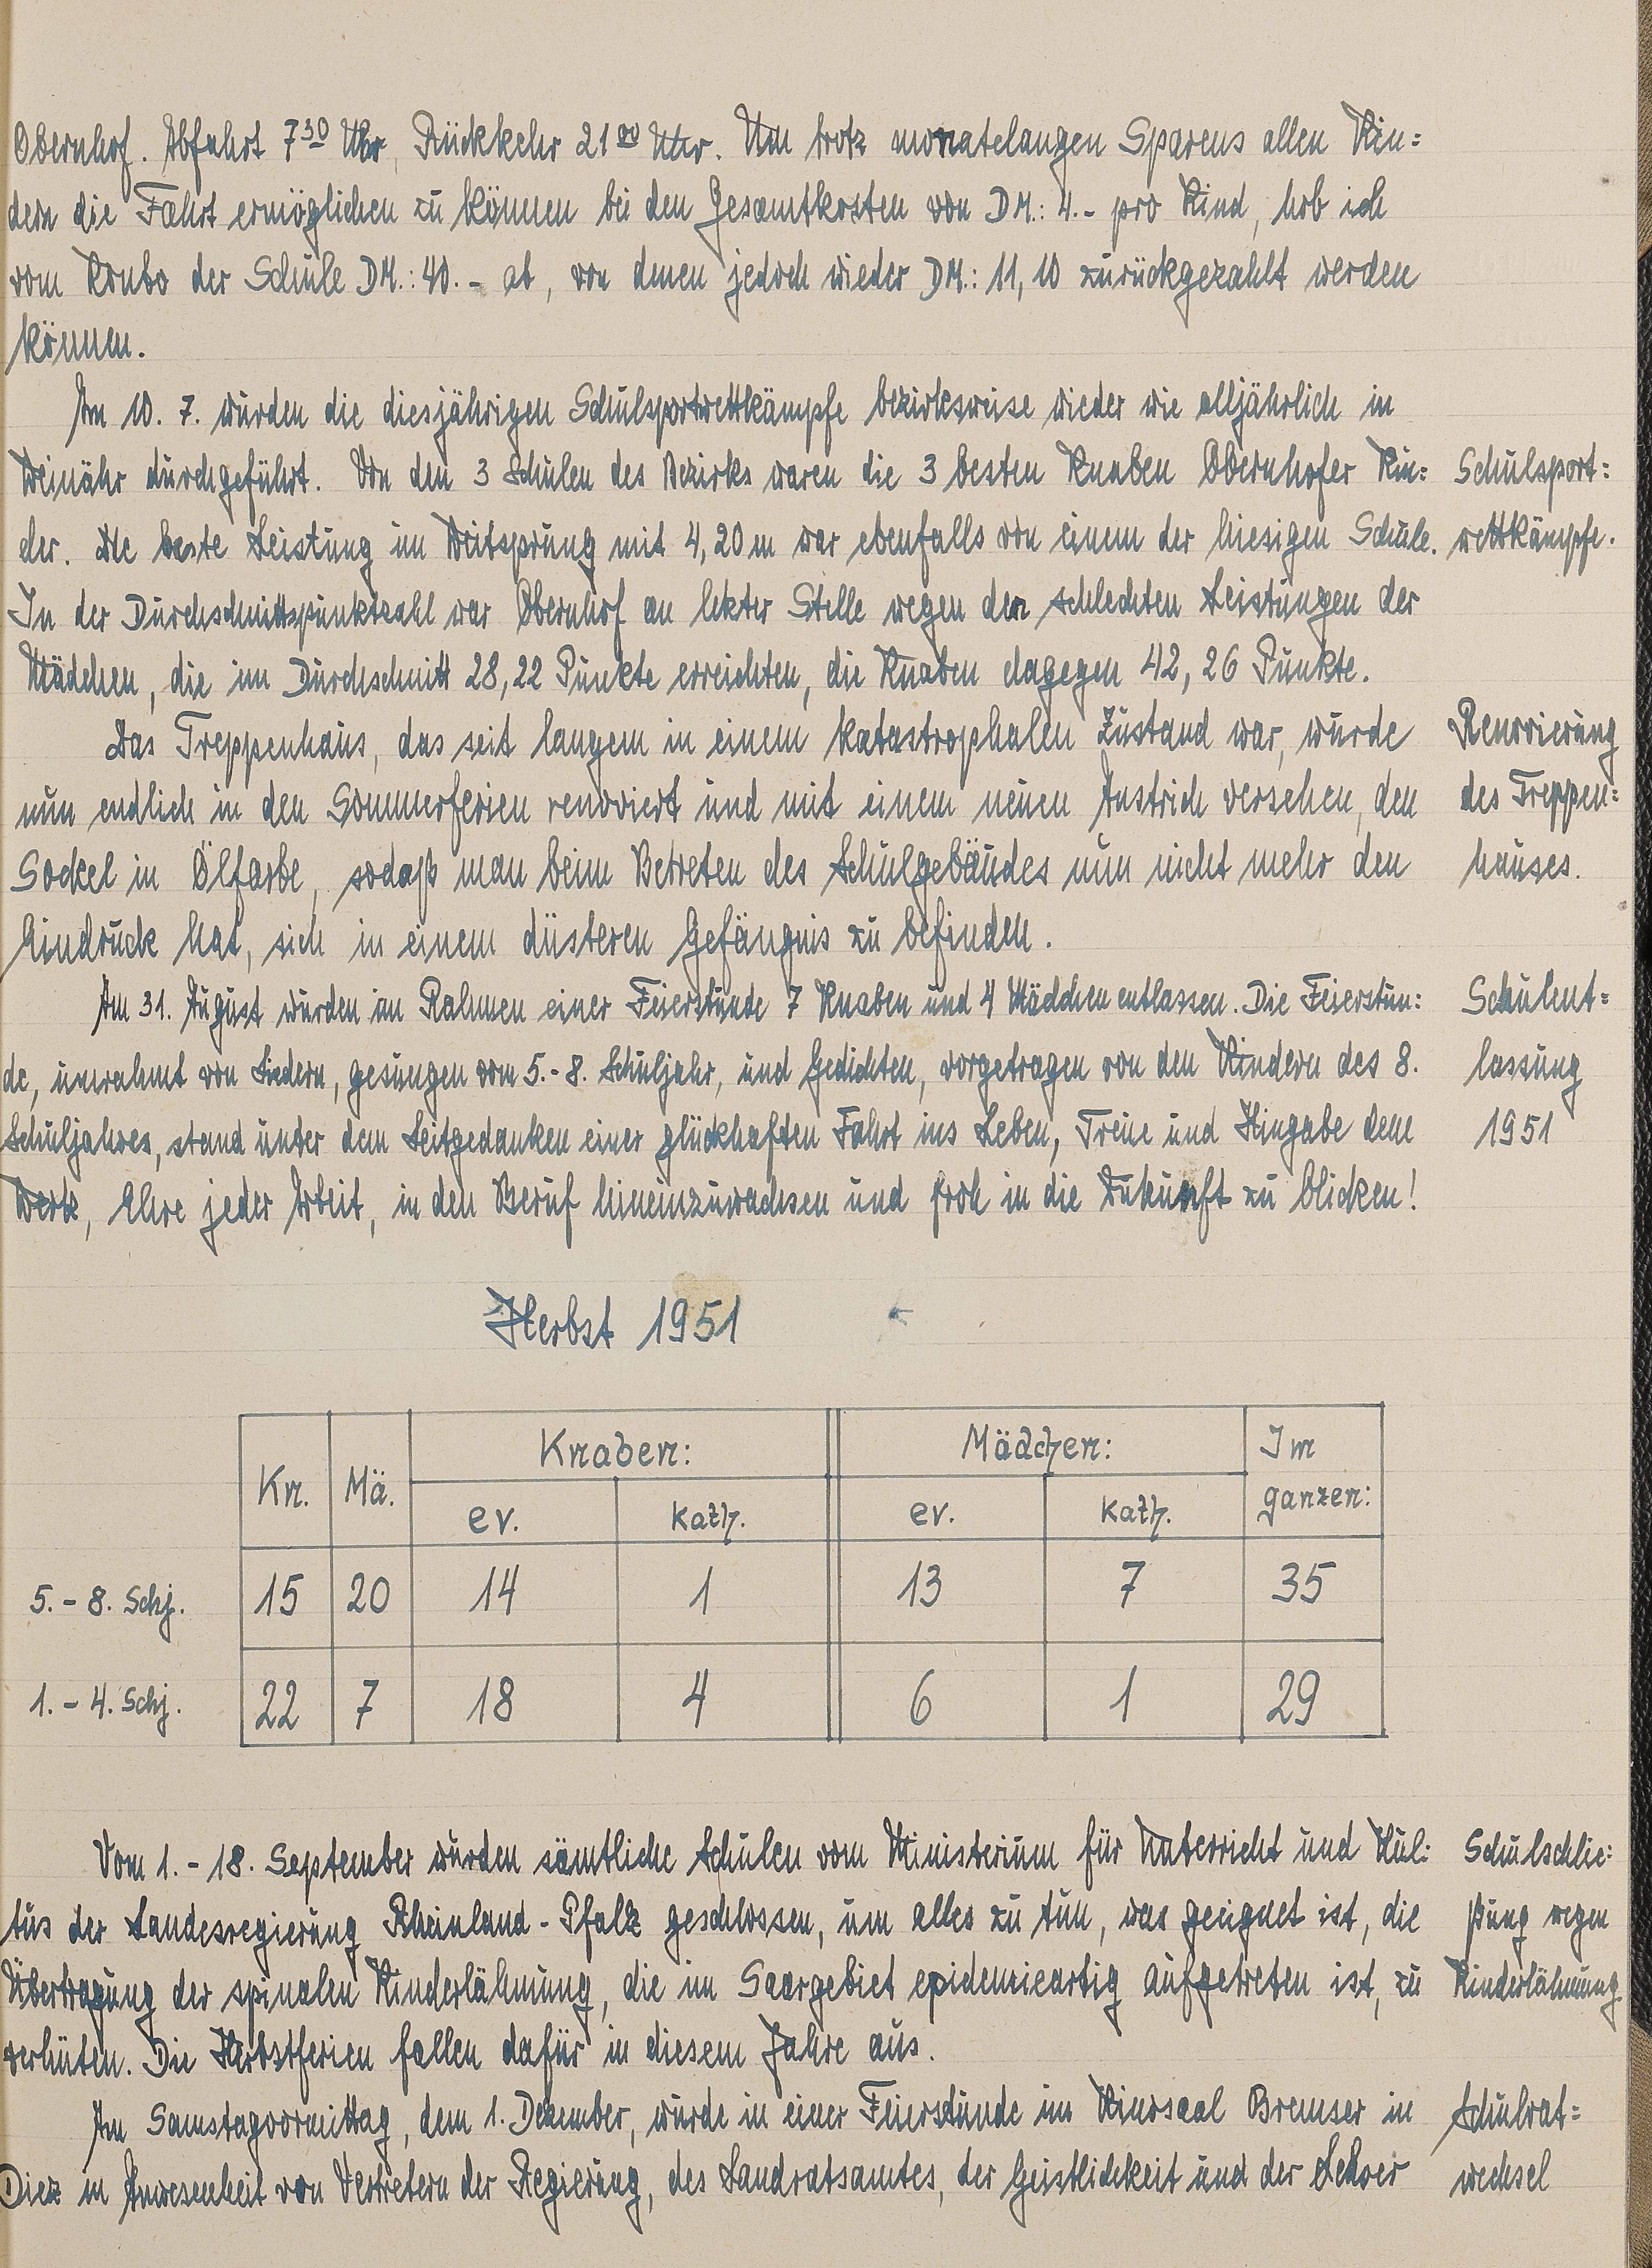 Obernhof. Abfahrt 7³⁰ Uhr, Rückkehr 21⁰⁰ Uhr. Um trotz monatelangen Sparens allen Kin=
dern die Fahrt ermöglichen zu können bei den Gesamtkosten von DM.: 4.- pro Kind, hob ich
vom Konto der Schule DM.: 40.- ab, von denen jedoch wieder DM.: 11,10 zurückgezahlt werden
können.
Am 10. 7. wurden die diesjährigen Schulsportwettkämpfe bezirksweise wieder wie alljährlich in
Weinähr durchgeführt. Von den 3 Schulen des Bezirks waren die 3 besten Knaben Obernhofer Kin= Schulsport=
der. Die beste Leistung im Weitsprung mit 4,20 m war ebenfalls von einem der hiesigen Schule. wettkämpfe.
In der Durchschnittspunktzahl war Obernhof an letzter Stelle wegen den schlechten Leistungen der
Mädchen, die im Durchschnitt 28,22 Punkte erreichten, die Knaben dagegen 42,26 Punkte.
Das Treppenhaus, das seit langem in einem katastrophalen Zustand war, wurde Renovierung
nun endlich in den Sommerferien renoviert und mit einem neuen Anstrich versehen, den des Treppen=
Sockel in Ölfarbe, sodaß man beim Betreten des Schulgebäudes nun nicht mehr den hauses.
Eindruck hat, sich in einem düsteren Gefängnis zu befinden.
Am 31. August wurden im Rahmen einer Feierstunde 7 Knaben und 4 Mädchen entlassen. Die Feierstun= Schulent=
de, umrahmt von Liedern, gesungen vom 5.-8. Schuljahr, und Gedichten, vorgetragen von den Kindern des 8. lassung
Schuljahres, stand unter dem Leitgedanken einer glückhaften Fahrt ins Leben, Treue und Hingabe dem 1951
Werke, Ehre jeder Arbeit, in den Beruf hineinzuwachsen und froh in die Zukunft zu blicken!
Herbst 1951
Kn. Mä. Knaben: Mädchen: Im ganzen:
ev. kath. ev. kath.
5.-8. Schj. 15 20 14 1 13 7 35
1.-4. Schj. 22 7 18 4 6 1 29
Vom 1.-18. September wurden sämtliche Schulen vom Ministerium für Unterricht und Kul= Schulschlie=
tus der Landesregierung Rheinland-Pfalz geschlossen, um alles zu tun, was geeignet ist, die ßung wegen
Übertragung der spinalen Kinderlähmung, die im Saargebiet epidemieartig aufgetreten ist, zu Kinderlähmung
verhüten. Die Herbstferien fallen dafür in diesem Jahre aus.
Am Samstagvormittag, dem 1. Dezember, wurde in einer Feierstunde im Kinosaal Bremser in Schulrat=
Diez in Anwesenheit von Vertretern der Regierung, des Landratsamtes, der Geistlichkeit und der Lehrer wechsel